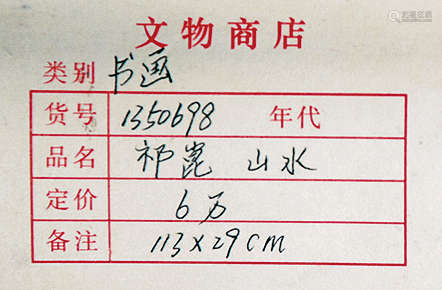 文物商店
类别 书画
货号 1350698 年代
品名 祁崑 山水
定价 6万
备注 113×29cm